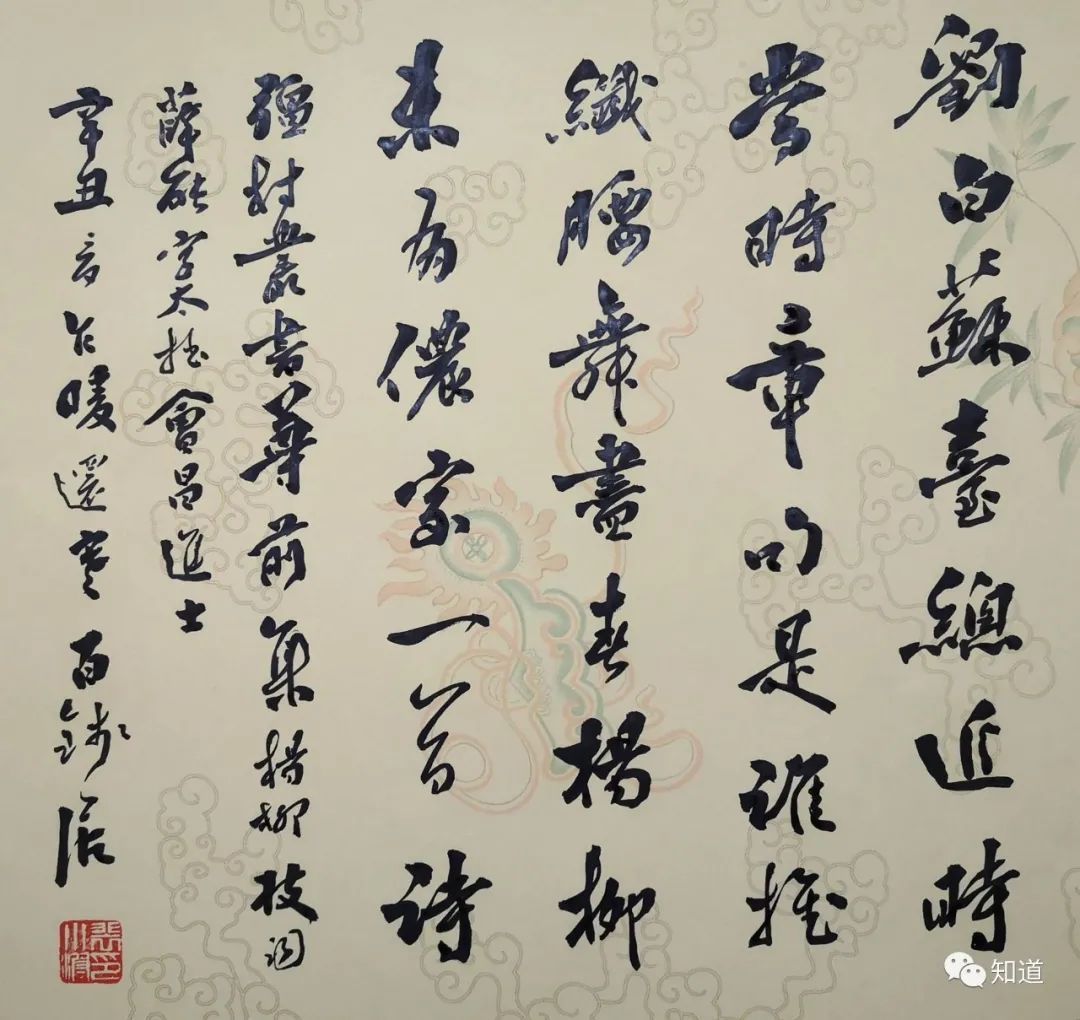 劉白蘇臺總近時
當時章句是誰推
纖腰舞盡春楊柳
未有儂家一首詩
彊村叢書尊前集楊柳枝詞
薛能字太拙會昌進士
辛丑乍暖還寒百錢居
知道